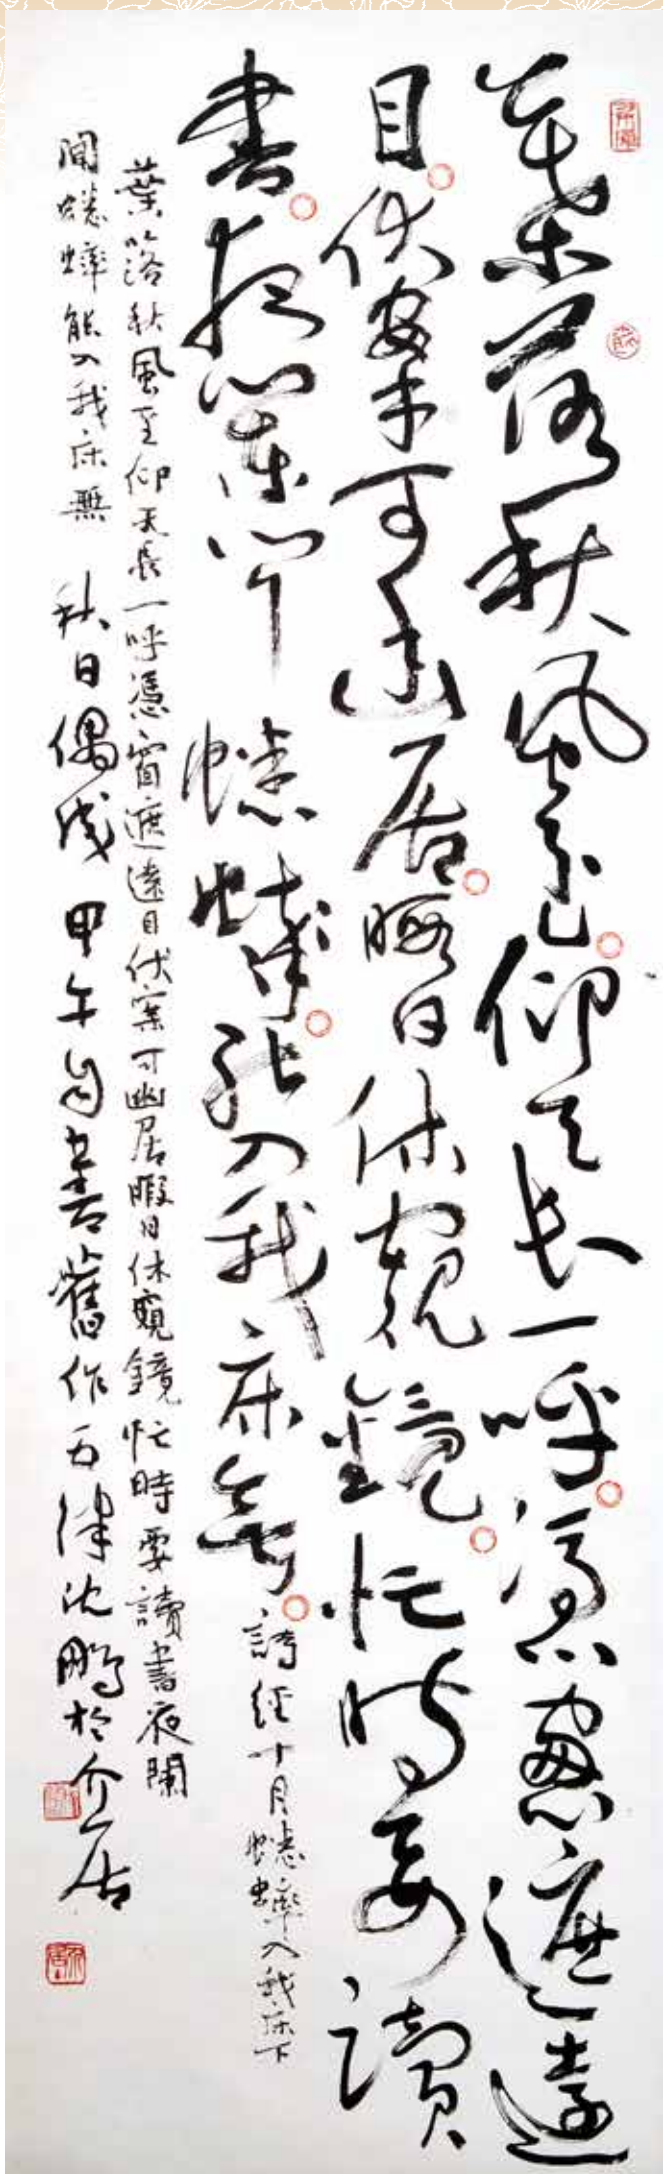 葉落秋風至仰天長一呼憑窗遮遠
目伏案可幽居暇日休窺鏡忙時要讀
書夜闌聞蟋蟀能入我床無
詩經十月蟋蟀入我床下
葉落秋風至仰天長一呼憑窗遮遠目伏案可幽居暇日休窺鏡忙時要讀書夜闌
聞蟋蟀能入我床無 秋日偶成 甲午自書舊作五律沈鵬於介居